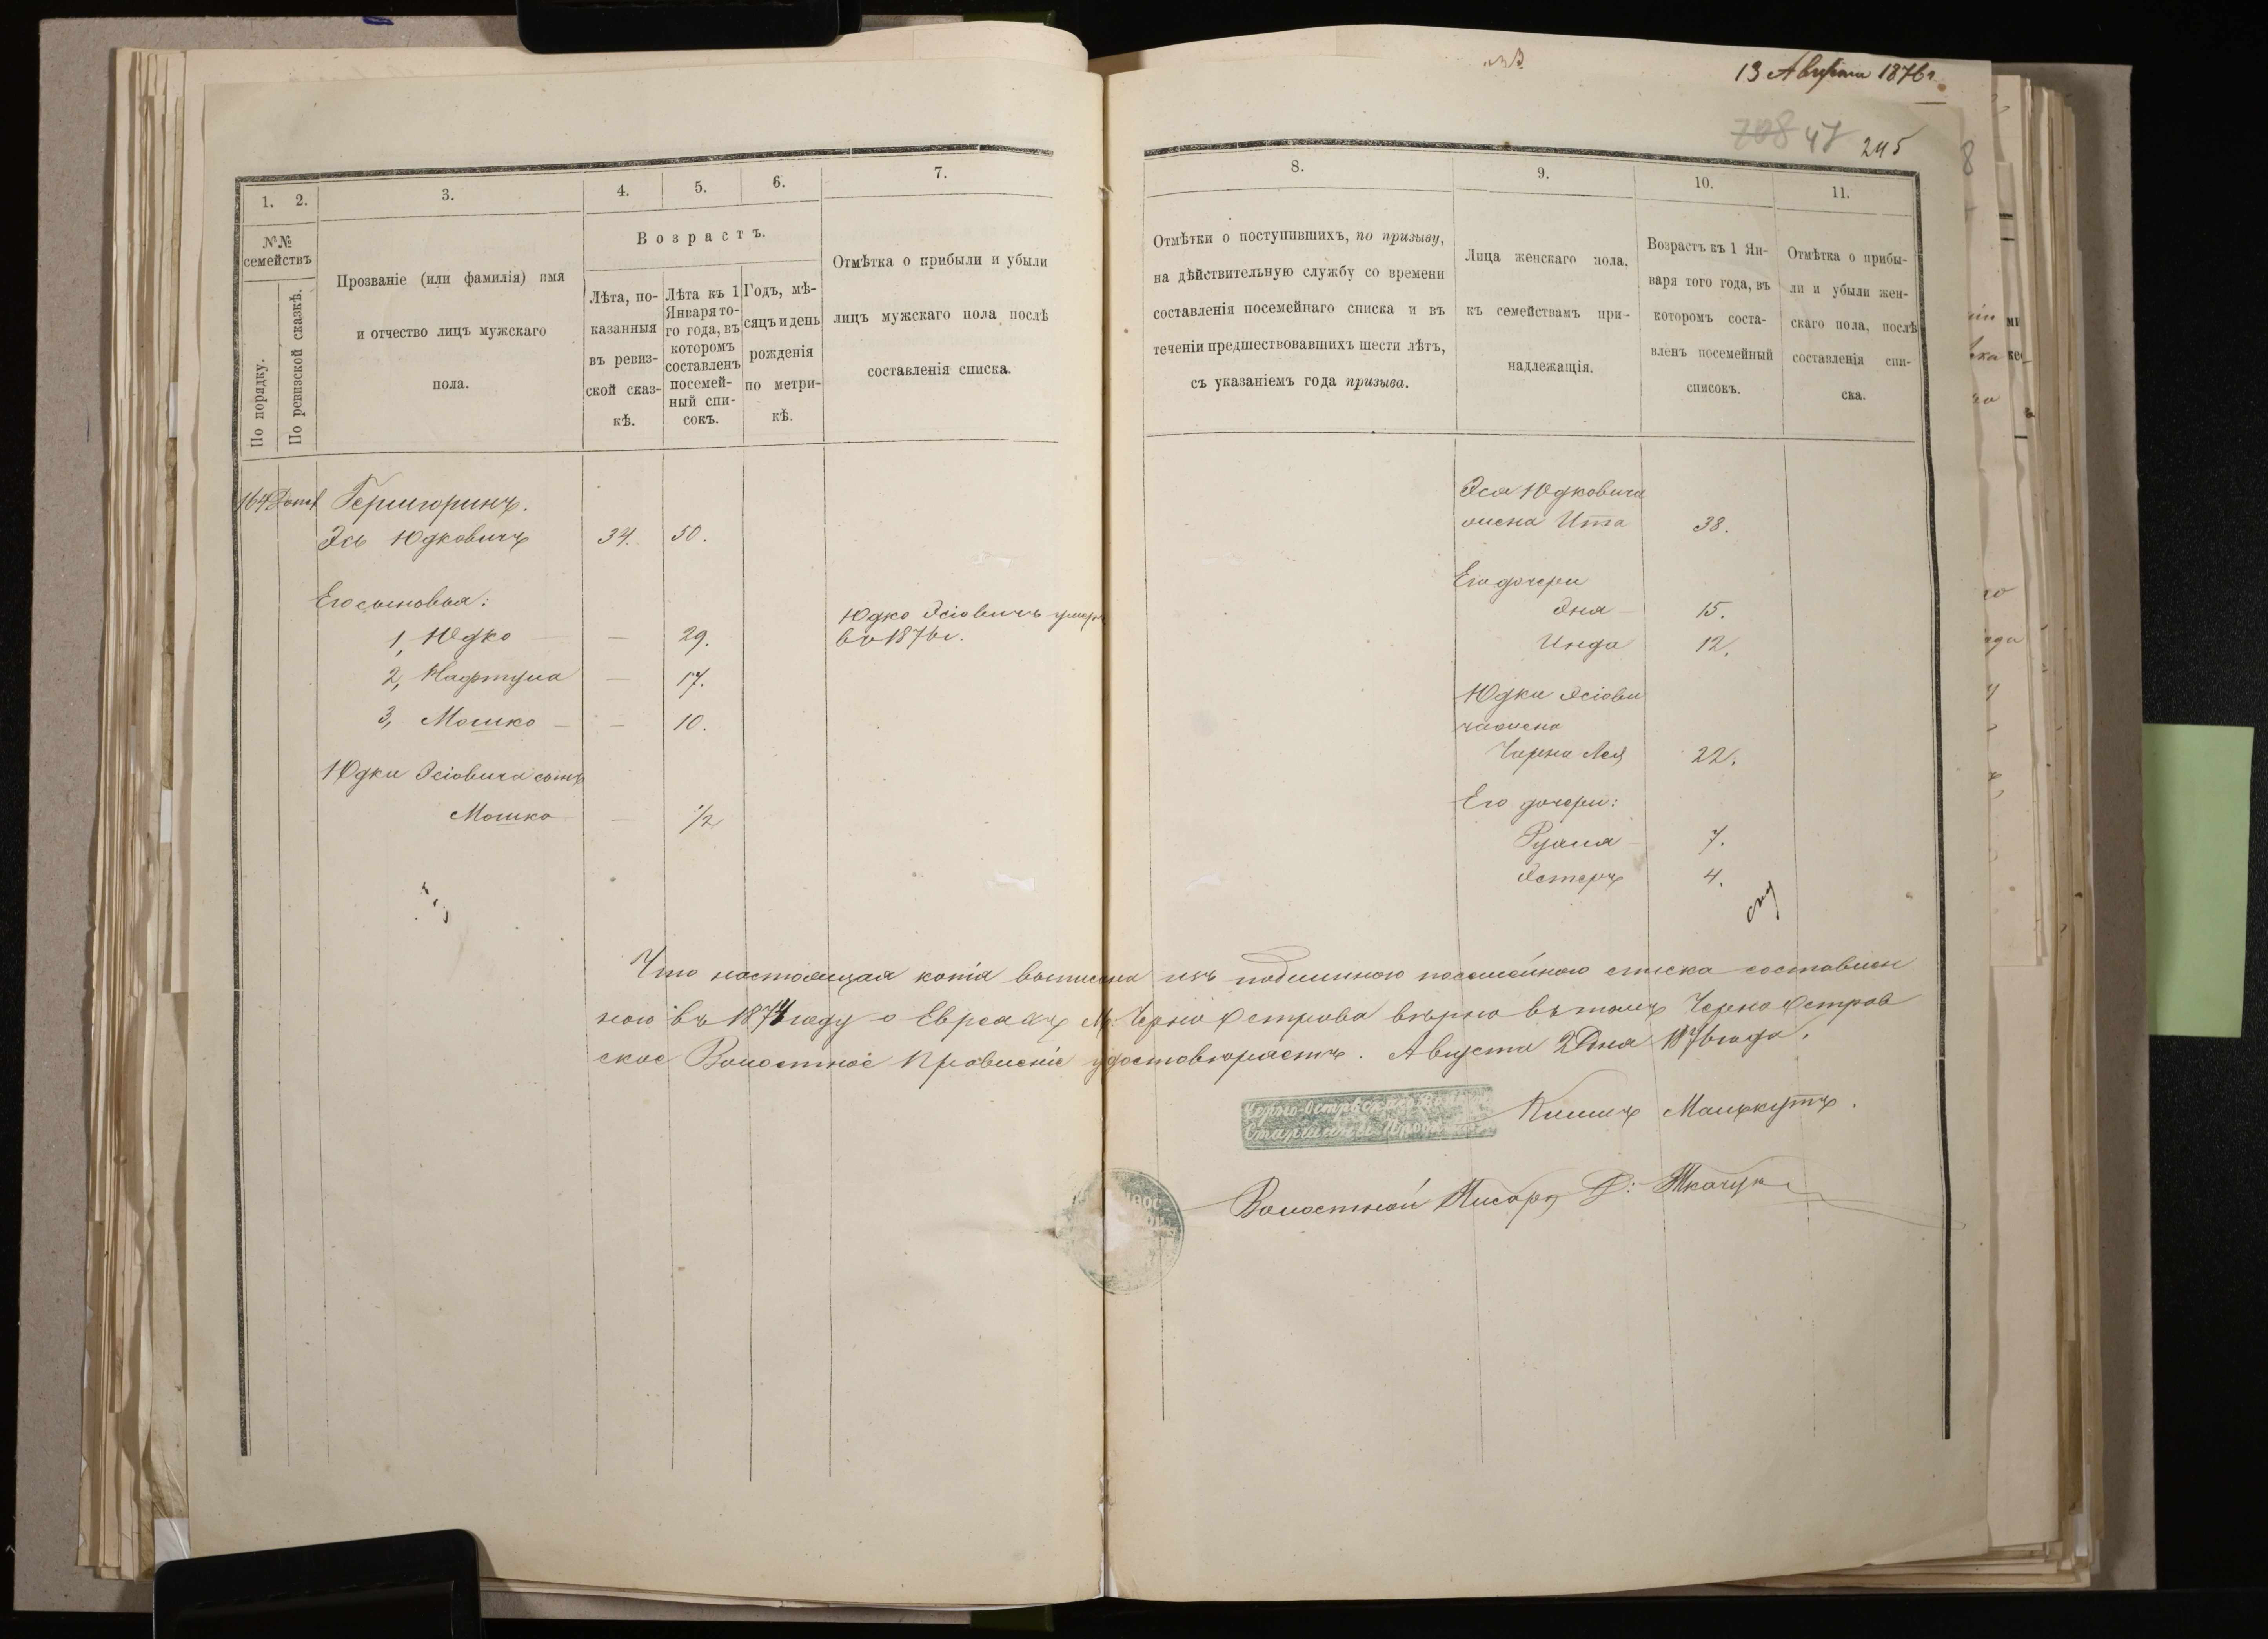 13 Августа 1876 г.
708 47 245
1. 2. 3. 4. 5. 6. 7.
№№ семействъ
По порядку.
По ревизской сказкѣ.
Прозваніе (или фамилія) имя
и отчество лицъ мужскаго
пола.
Возрастъ.
Лѣта, по-
казанныя
въ ревиз-
ской сказ-
кѣ.
Лѣта къ 1
Января то-
го года, въ
которомъ
составленъ
посемей-
ный спи-
сокъ.
Годъ, мѣ-
сяцъ и день
рожденія
по метри-
кѣ.
Отмѣтка о прибыли и убыли
лицъ мужскаго пола послѣ
составленія списка.
164
Эсь Юдковичъ 34. 50.
Его сыновья:
1, Юдко — — 29.
Юдко Эсіовичъ умеръ
въ 1876 г.
2, Нафтула — 17.
3, Мошко — — 10.
Юдки Эсіовича сынъ
Мошко — 1/2
8. 9. 10. 11.
Отмѣтки о поступившихъ, по призыву,
на дѣйствительную службу со времени
составленія посемейнаго списка и въ
теченіи предшествовавшихъ шести лѣтъ,
съ указаніемъ года призыва.
Лица женскаго пола,
къ семействамъ при-
надлежащія.
Возрастъ къ 1 Ян-
варя того года, въ
которомъ соста-
вленъ посемейный
списокъ.
Отмѣтка о прибы-
ли и убыли жен-
скаго пола, послѣ
составленія спи-
ска.
Эся Юдковича
жена Ита 38.
Его дочери
Эня — 15.
Инда 12.
Юдки Эсіови
ча жена
Чарна Лея 22.
Его дочери:
7.
Эстеръ 4.
Что настоящая копія выписана изъ подлинного посемейного списка составлен
ного въ 1874 году о Евреяхъ М. Черно Острова вѣрно въ томъ Черно Остров
ское Волостное Правленіе удостовѣряетъ. Августа 2 Дня 1876 года.
Черно-Островскаго
Старшины
Волостной Писарь Ткачук